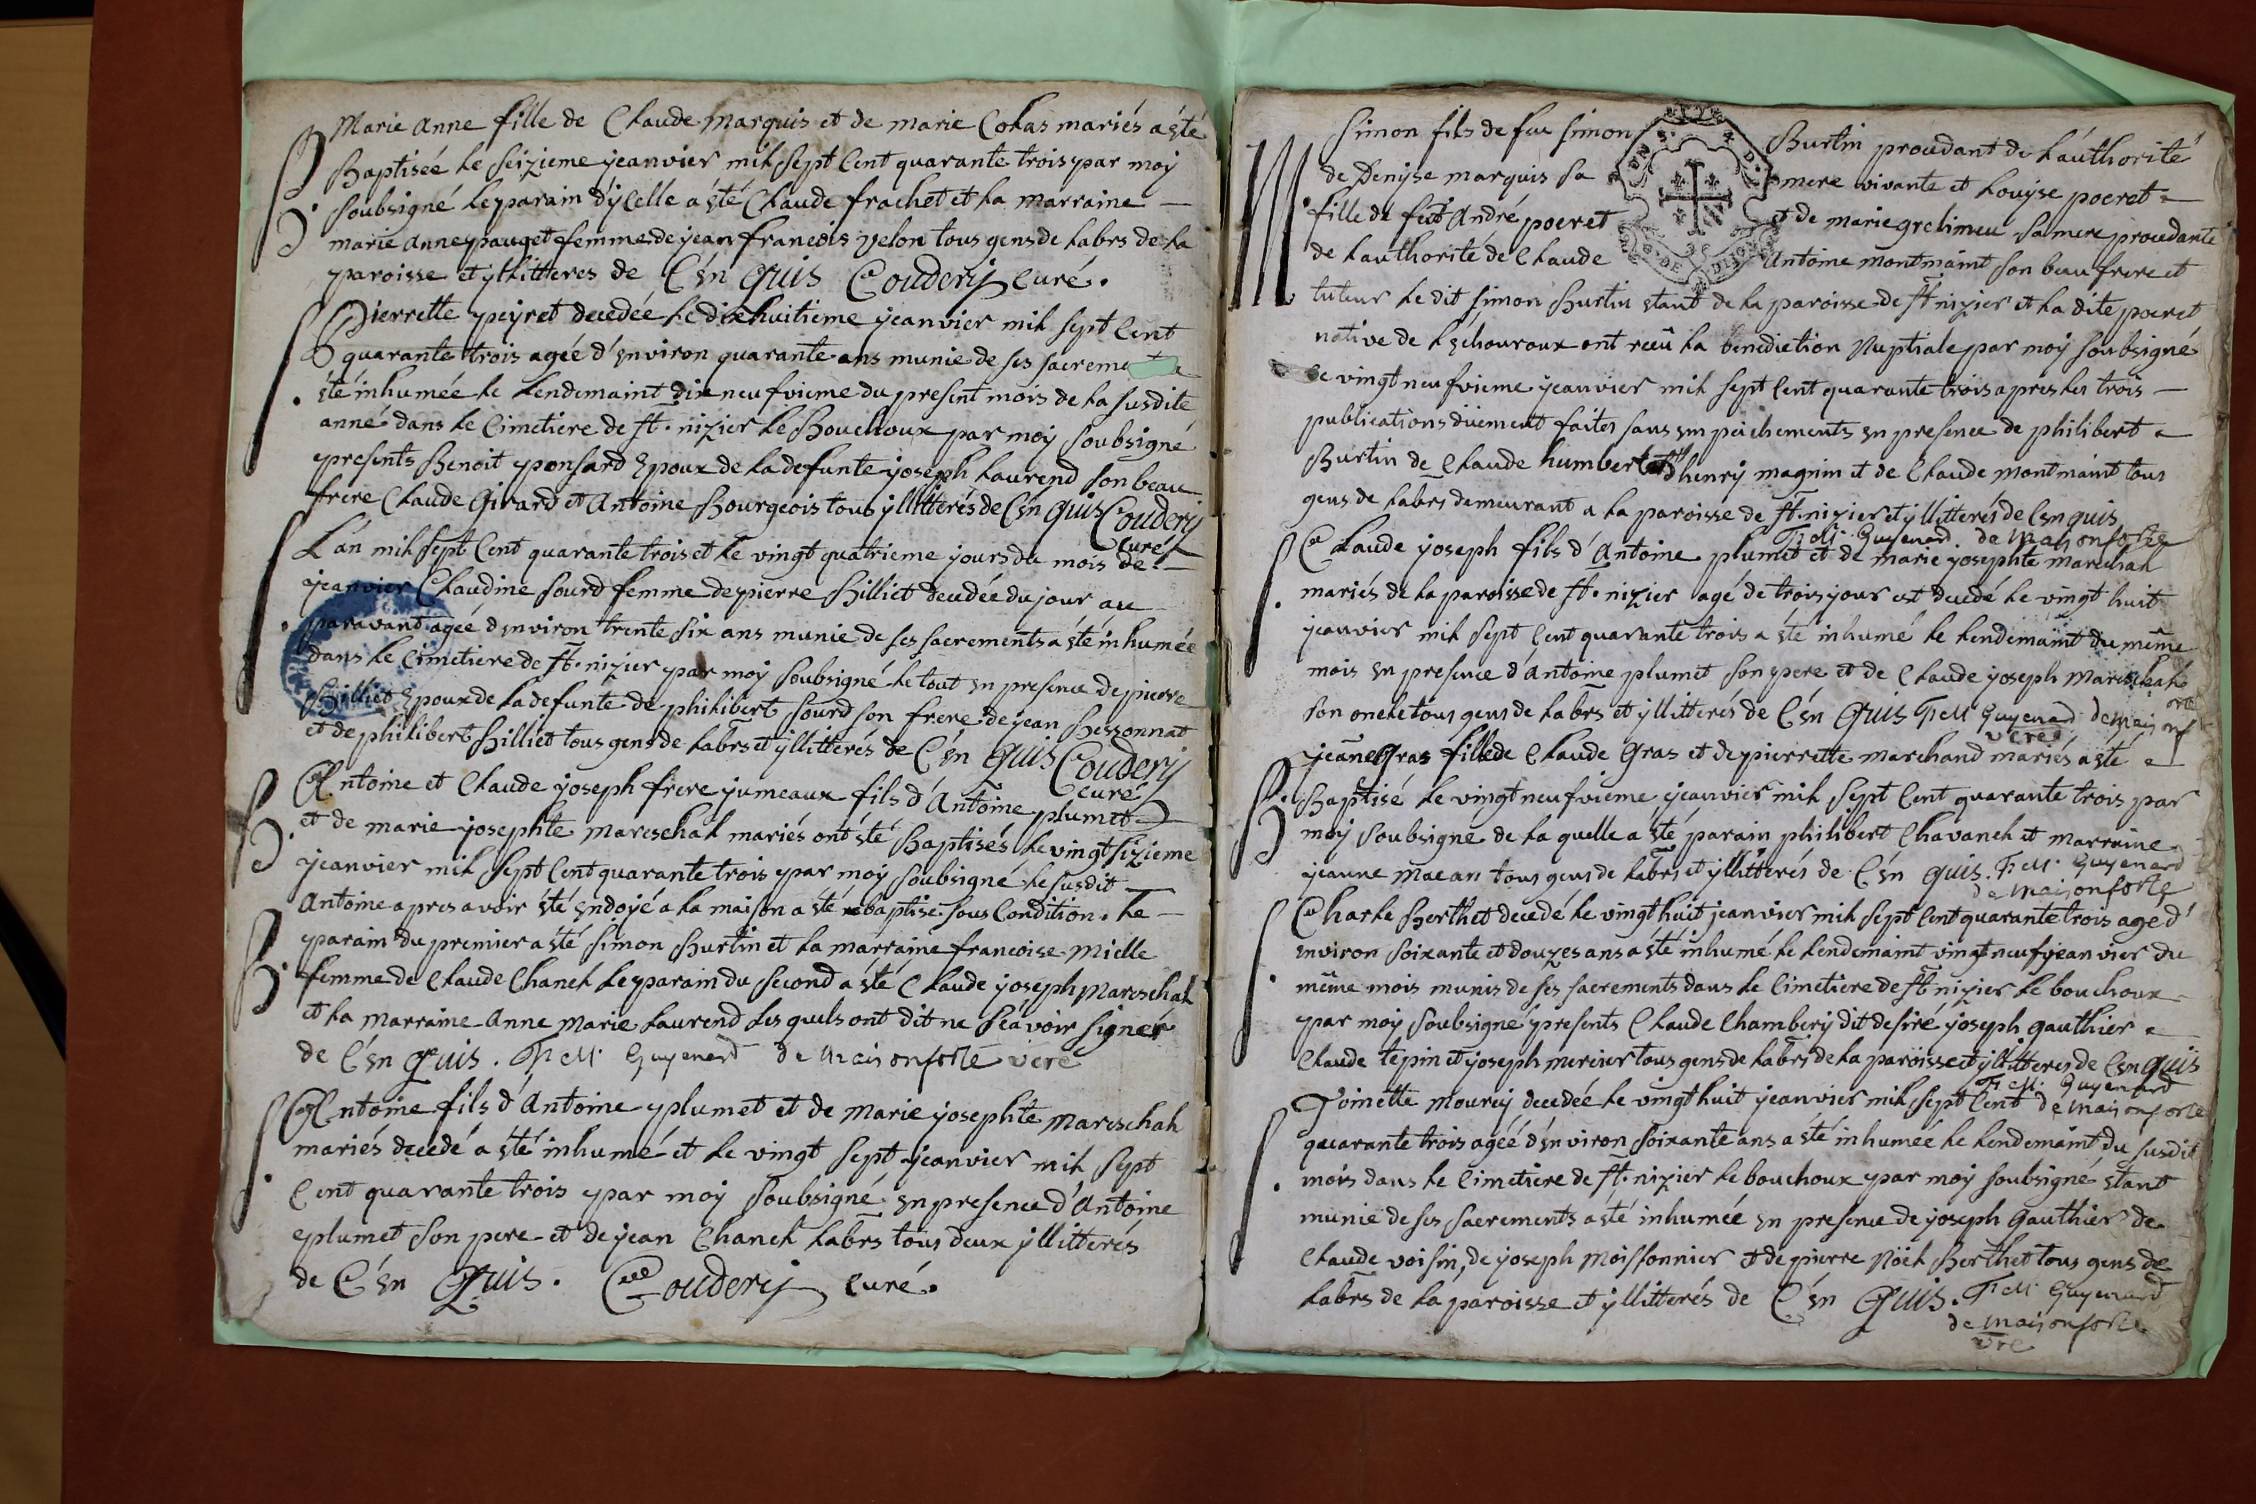 Marie anne fille de Claude Marquis et de marie Colas mariés a été
B. Baptisée le seizieme jeanvier mil sept Cent quarante trois par moÿ
soubsigné le parain d'ÿcelle a été Claude frachet et la marraine
marie anne pauget femme de jean francois velon tous gens de labrs de la
paroisse et ÿllitteres de C'en quis Couderij curé.
S. Pierrette peÿret decedée le dixhuitieme jeanvier mil sept Cent
quarante trois ageé d'environ quarante ans munie de ses sacreme
été inhumée le lendemaint dix neufvieme du present mois de la susdite
anné dans le Cimetiere de st. nizier le Bouchoux par moÿ soubsigné
presents Benoit ponsard Epoux de la defunte joseph Laurend son beau
frere Claude Girard et Antoine Bourgeois tous ÿllitterés de C'en quis Couderij
curé
S. L'an mil sept Cent quarante trois et le vingt quatrieme jours du mois de
jeanvier Claudine sourd femme de pierre Billiet decedée du jour au
paravant ageé d'environ trente six ans munie de ses sacrements a été inhumée
dans le Cimetiere de st. nizier par moÿ soubsigné le tout en presence de pierre
Billiet Epoux de la defunte de philibert sourd son frere de jean Bessonnat
et de philibert Billiet tous gens de labrs et ÿllitterés de C'en quis Couderij
curé
B. Antoine et Claude joseph frere jumeaux fils d'Antoine plumet
et de marie josephte mareschal mariés ont été Baptisés le vingt sizieme
jeanvier mil sept Cent quarante trois par moÿ soubsigné le susdit
Antoine apres avoir été endoÿé a la maison a été rebaptisé sous Condition. Le
B. parain du premier a été simon Burtin et la marraine francoise Mielle
femme de Claude Chanel le parain du second a été Claude joseph Mareschal
et la Marraine Anne Marie Laurend lesquels ont dit ne scavoir signer
de C'en quis. F. M. Guyenard de maisonforte vere
S. Antoine fils d'Antoine plumet et de Marie josephte Mareschal
mariés decedé a été inhumé et le vingt sept jeanvier mil sept
Cent quarante trois par moÿ soubsigné en presence d'Antoine
plumet son pere et de jean Chanel labrs tous deux ÿllitterés
de C'en Quis. Couderij curé.
M. Simon fils de feu simon Burtin procedant de l'áuthorité
de Denÿse marquis sa mere vivante et Louÿse poeret
fille de feu André poeret et de marie grelimeu sa mere procedante
de l'authorité de Claude Antoine montmaint son beau frere et
tuteur le dit simon Burtin étant de la paroisse de st. nizier et la dite poeret
native de Leschouroux ont receû la benediction Nuptiale par moÿ soubsigné
le vingt neufvieme jeanvier mil sept Cent quarante trois apres les trois
publications düement faites sans empeichements en presence de philibert
Burtin de Claude humbert d'henrÿ magnin et de Claude montmaint tous
gens de labrs demeurant a la paroisse de st. nizier et ÿllitterés de C'en quis
F. M. Guyenard de maisonforte
S. Claude joseph fils d'Antoine plumet et de marie josephte mareschal
mariés de la paroisse de st. nizier agé de trois jour est decedé le vingt huit
jeanvier mil sept Cent quarante trois a été inhumé le lendemaint du même
mois en presence d'Antoine plumet son pere et de Claude joseph Mareschal
son oncle tous gens de labrs et ÿllitterés de C'en quis F. M. Guyenard de maisonforte
vere
B. jeanne Gras fille de Claude Gras et de pierrette marchand mariés a été
Baptisé le vingt neufvieme jeanvier mil sept Cent quarante trois par
moÿ soubsigné de la quelle a été parain philibert Chavanel et marraine
jeanne Macan tous gens de labrs et ÿllitterés de C'en quis. F. M. Guyenard
de maisonforte
S. Charle Berthet decedé le vingt huit jeanvier mil sept Cent quarante trois age d'
environ soixante et douzes ans a été inhumé le lendemaint vingt neuf jeanvier du
même mois munis de ses sacrements dans le Cimetiere de st. nizier le bouchoux
par moÿ soubsigné presents Claude Chamberÿ dit desiré joseph gauthier
Claude tepin et joseph mercier tous gens de labrs de la paroisse et ÿllitteres de C'en quis
F. M. Guyenard
de maisonforte
S. Toinette Mourcÿ decedée le vingt huit jeanvier mil sept Cent
quarante trois ageé d'environ soixante ans a été inhumée le lendemaint du susdit
mois dans le Cimetiere de st. nizier le bouchoux par moÿ soubsigné étant
munie de ses sacrements a été inhumée en presence de joseph Gauthier de
Claude voisin, de joseph Moissonnier et de pierre Nöel Berthet tous gens de
labrs de la paroisse et ÿllitterés de C'en quis. F. M. Guyenard
de maisonforte
vre